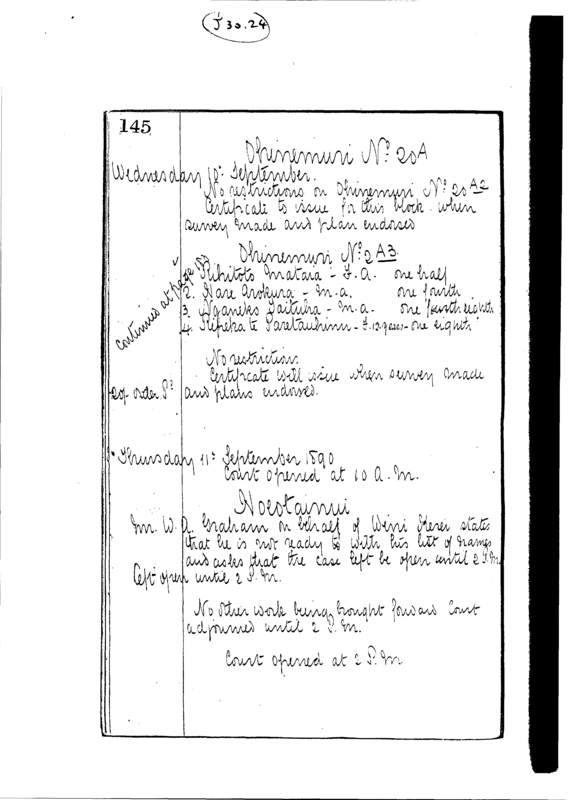 J 30.24
145
Ohinemuri No. 20A
Wednesday 10th September.
No restrictions on Ohinemuri No. 20 A2
Certificate to issue for this block when
survey made and plan endorsed
Ohinemuri No. 2 A3.
continued at page
1. Rihitoto Mataia - F.A. one half
2. Hare - m.a. one fourth
3. - m.a. one eighth
4. Ripeka te - F. 12 years - one eighth
No restriction.
Certificate will issue when survey made
and plans endorsed.
Copy order Pd
Thursday 11th September 1890
Court opened at 10 A.M.
Mr. W. A. Graham on behalf of Wini states
that he is not ready with his list of names
and asks that the case left be open until 2 P.M.
Left open until 2 P.M.
No other work being brought forward Court
adjourned until 2 P.M.
Court opened at 2 P.M.